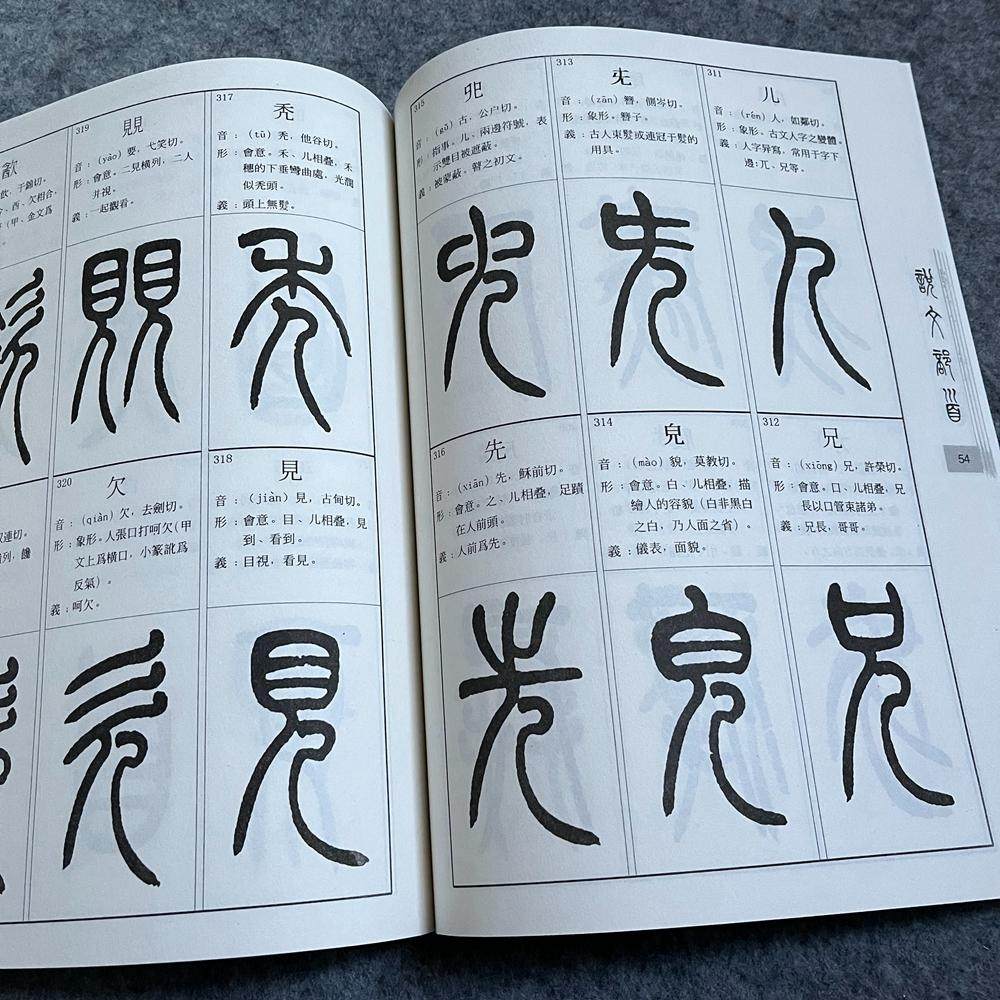 311
儿
音：（rén）人，如鄰切。
形：象形。古文人字之變體
義：人字异寫，常用于字下
邊：兀、兄等。
312
兄
音：（xiōng）兄，許榮切。
形：會意。口、儿相叠，兄
長以口管束諸弟。
義：兄長，哥哥。
313
兂
音：（zān）簪，側岑切。
形：象形。簪子。
義：古人束髮或連冠于髮的
用具。
314
皃
音：（mào）貌，莫教切。
形：會意。白、儿相叠，描
繪人的容貌（白非黑白
之白，乃人面之省）。
義：儀表，面貌。
315
兜
音：（gǔ）古，公户切。
形：指事。儿、兩邊符號，表
示雙目被遮蔽。
義：被蒙蔽。瞽之初文。
316
先
音：（xiān）先，穌前切。
形：會意。之、儿相叠，足蹟
在人前頭。
義：人前爲先。
說文部首
54
317
禿
音：（tū）禿，他谷切。
形：會意。禾、儿相叠，禾
穗的下垂彎曲處，光潤
似禿頭。
義：頭上無髮。
318
見
音：（jiàn）見，古甸切。
形：會意。目、儿相叠，見
到、看到。
義：目視，看見。
319
覞
音：（yào）要，弋笑切。
形：會意。二見横列，二人
并視。
義：一起觀看。
320
欠
音：（qiàn）欠，去劍切。
形：象形。人張口打呵欠（甲
文上爲横口，小篆訛爲
反氣）。
義：呵欠。
㱃
飲，于錦切。
、酉、欠相合，
（甲、金文爲